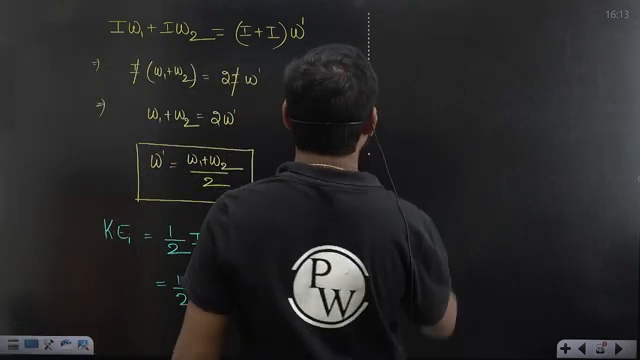 16:13
Iω₁ + Iω₂ = (I + I) ω'
⇒ I (ω₁+ω₂) = 2I ω'
⇒ ω₁ + ω₂ = 2ω'
ω' = (ω₁+ω₂)/2
KE₁ = 1/2 I
= 1/2
PW